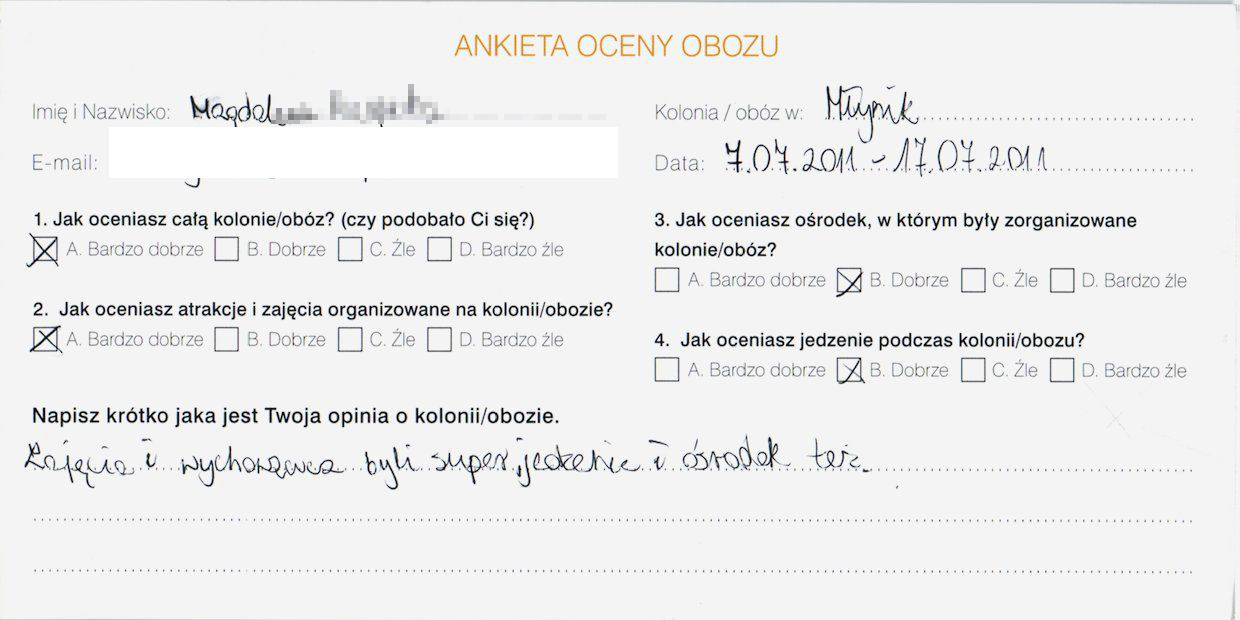 ANKIETA OCENY OBOZU
Imię i Nazwisko:
E-mail:
Kolonia / obóz w: Młynik
Data: 7.07.2011 - 17.07.2011
1. Jak oceniasz całą kolonie/obóz? (czy podobało Ci się?)
A. Bardzo dobrze B. Dobrze C. Źle D. Bardzo źle
2. Jak oceniasz atrakcje i zajęcia organizowane na kolonii/obozie?
A. Bardzo dobrze B. Dobrze C. Źle D. Bardzo źle
3. Jak oceniasz ośrodek, w którym były zorganizowane
kolonie/obóz?
A. Bardzo dobrze B. Dobrze C. Źle D. Bardzo źle
4. Jak oceniasz jedzenie podczas kolonii/obozu?
A. Bardzo dobrze B. Dobrze C. Źle D. Bardzo źle
Napisz krótko jaka jest Twoja opinia o kolonii/obozie.
Zajęcia i wychowawca byli super, jedzenie i ośrodek też.